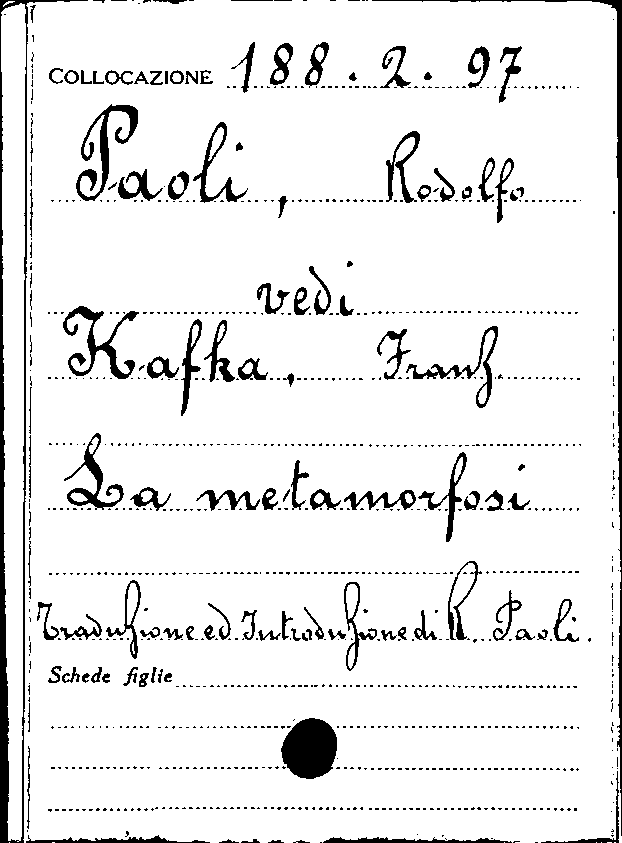 COLLOCAZIONE 188.2.97
Paoli, Rodolfo
vedi
Kafka, Franz.
La metamorfosi
Traduzione ed Introduzione di R. Paoli.
Schede figlie